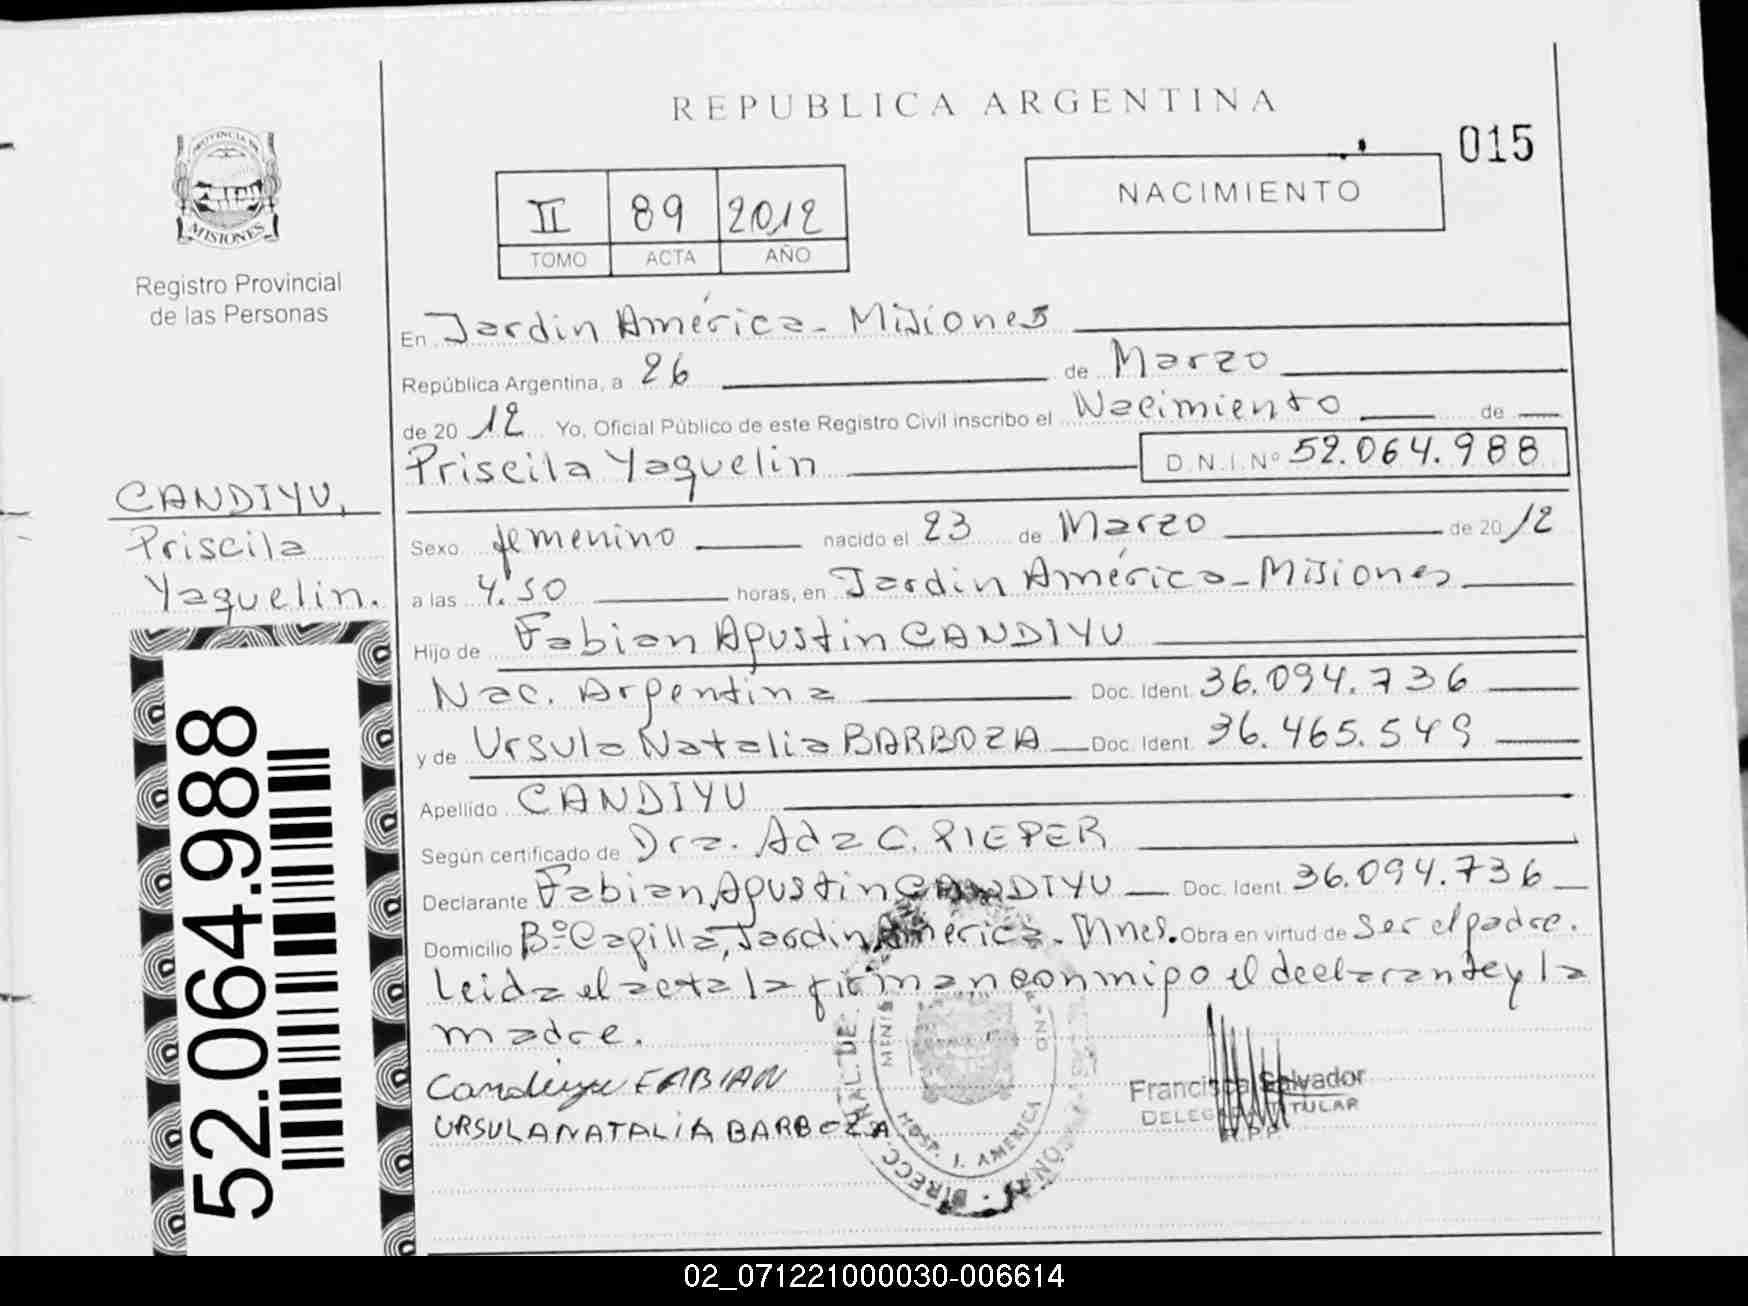 REPUBLICA ARGENTINA
015
NACIMIENTO
II 89 2012
TOMO ACTA AÑO
PROVINCIA DE
MISIONES
Registro Provincial
de las Personas
En Jardin América - Misiones
República Argentina, a 26 de Marzo
de 2012 Yo, Oficial Público de este Registro Civil inscribo el Nacimiento de
Priscila Yaquelin D.N.I.Nº 52.064.988
CANDIYU,
Priscila
Yaquelin.
Sexo femenino nacido el 23 de Marzo de 2012
a las 4.50 horas, en Jardin América - Misiones
Hijo de Fabian Agustin CANDIYU
Nac. Argentina Doc. Ident. 36.094.736
y de Ursula Natalia BARBOZA Doc. Ident. 36.465.549
Apellido CANDIYU
Según certificado de Dra. Ada C. PIEPER
Declarante Fabian Agustin CANDIYU Doc. Ident. 36.094.736
Domicilio Bº Capilla, Jardin América - Mnes. Obra en virtud de ser el padre.
Leida el acta la firman conmigo el declarante y la
madre.
Candiyu FABIAN
URSULA NATALIA BARBOZA
Salvador
TITULAR
HOSP. J. AMERICA
52.064.988
02_071221000030-006614